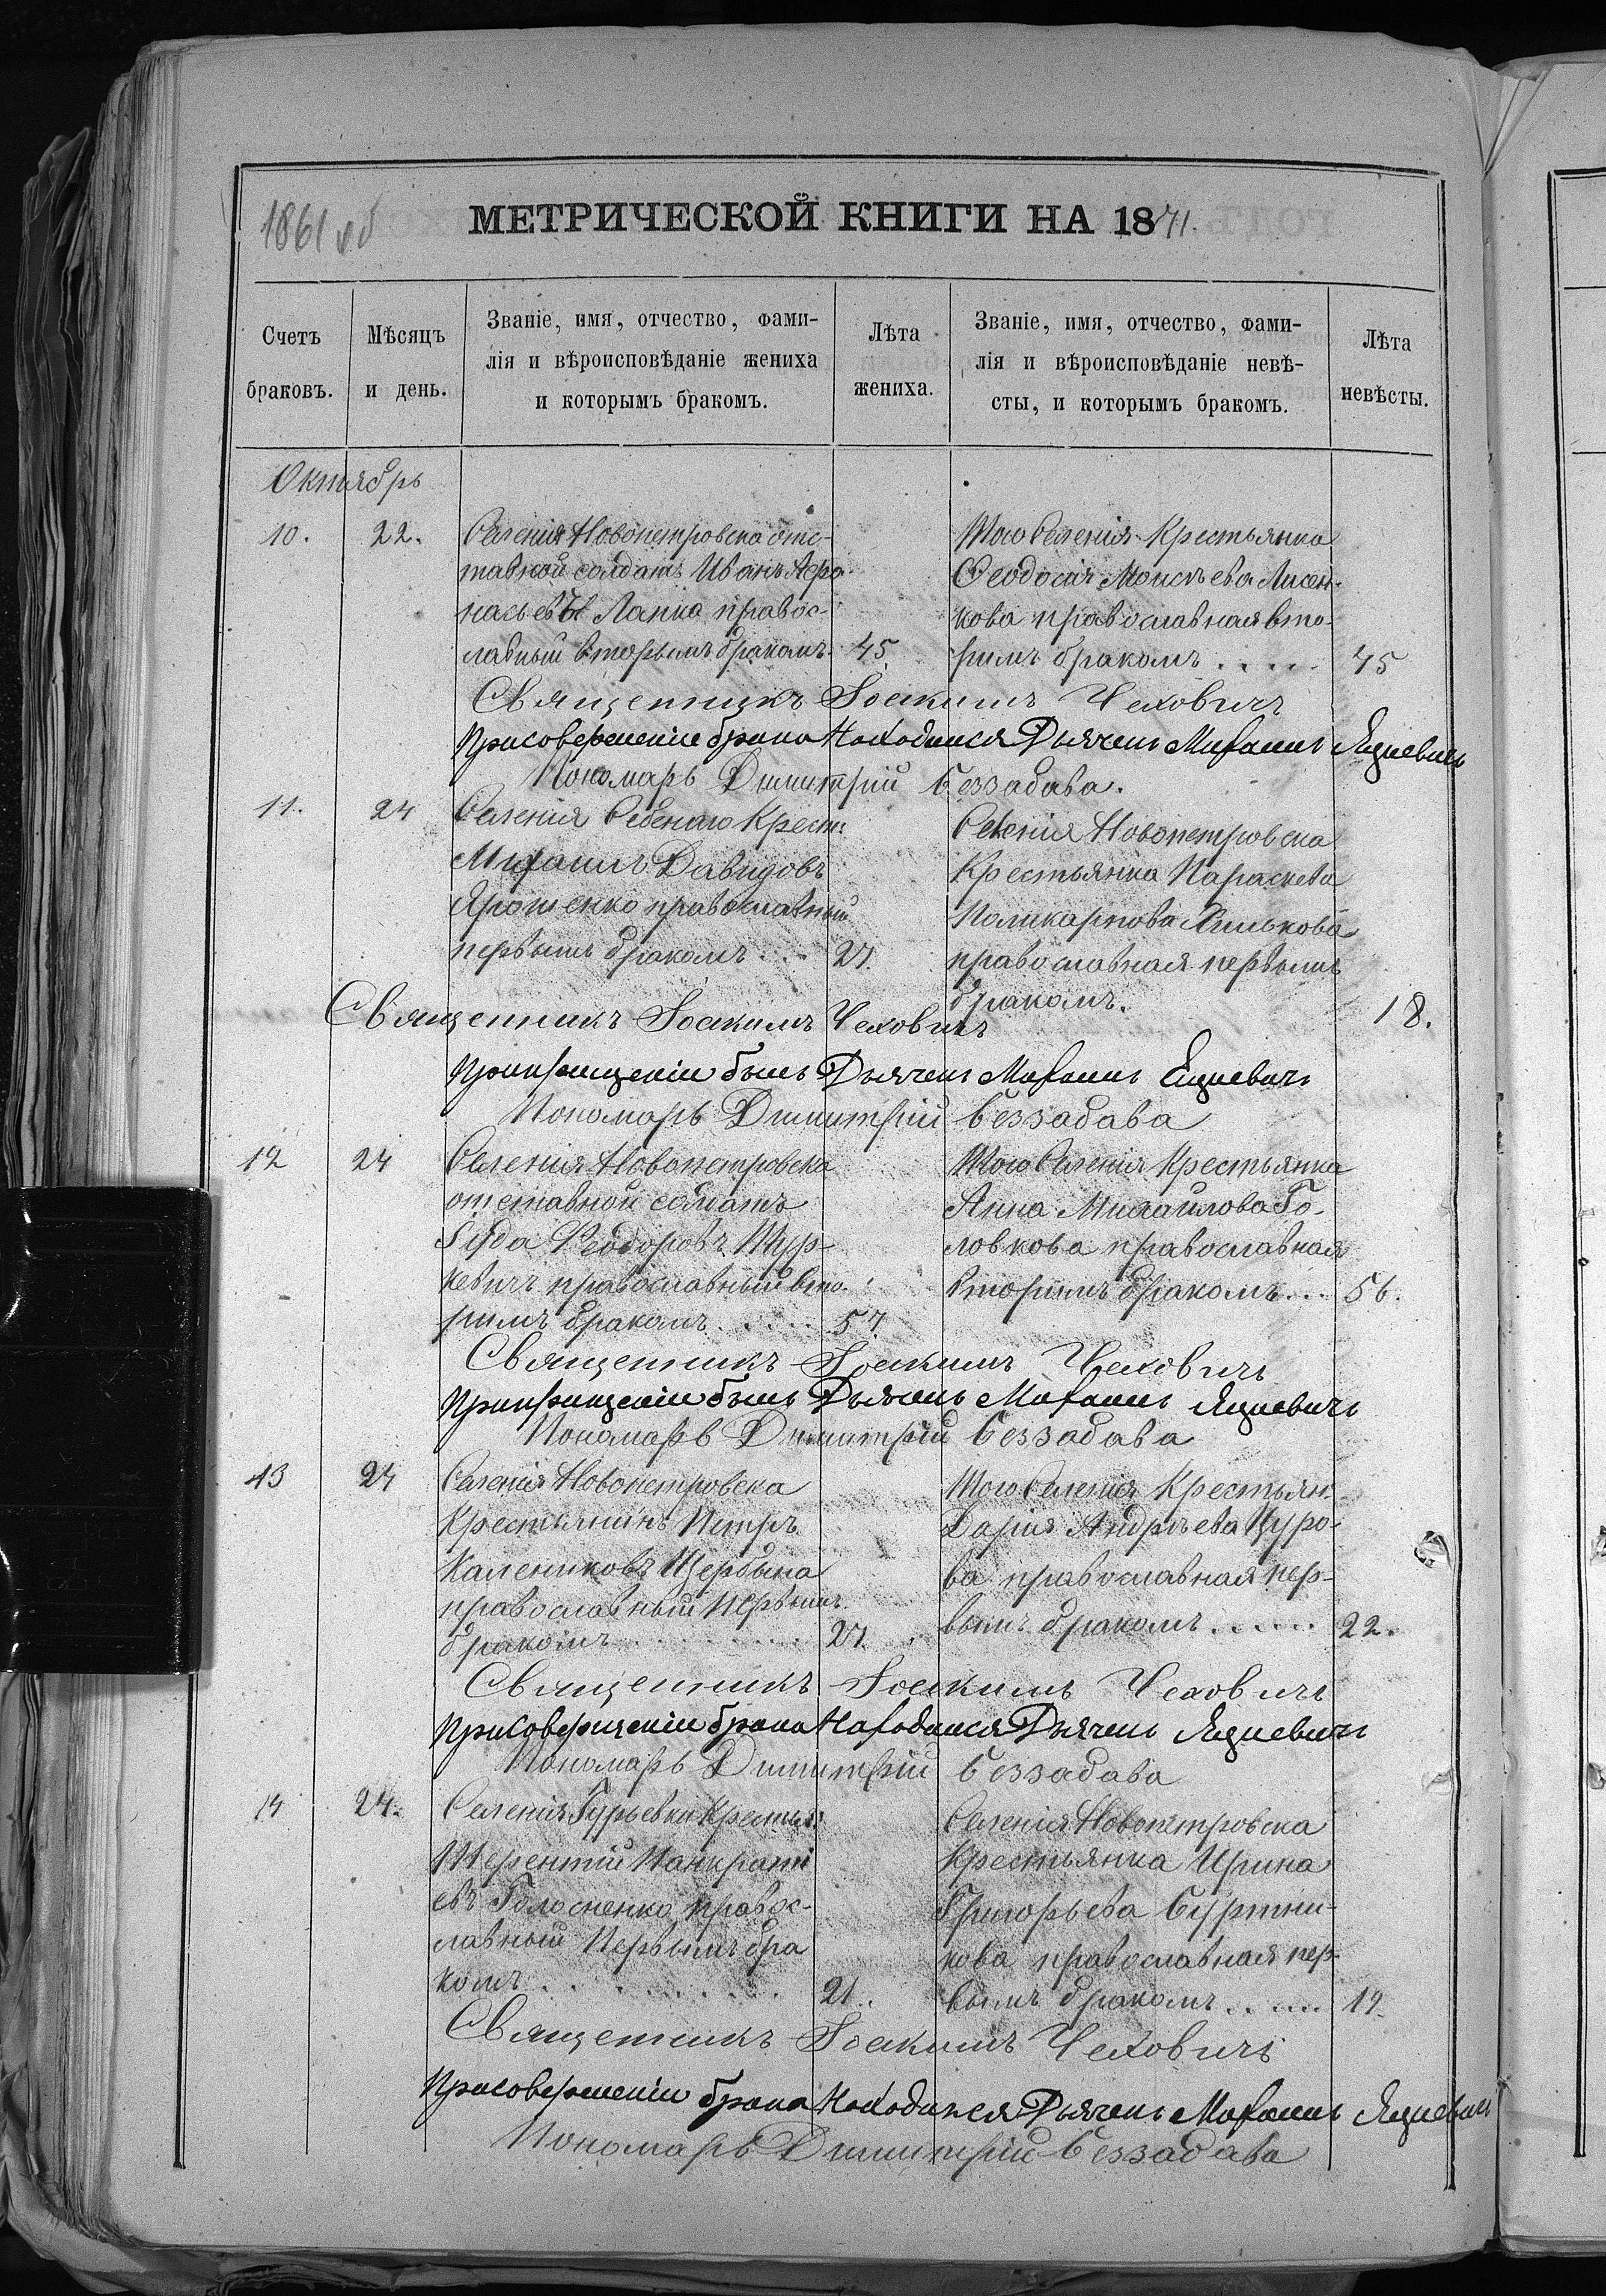 1861 об
МЕТРИЧЕСКОЙ КНИГИ НА 1871.
Счетъ браковъ.
Мѣсяцъ и день.
Званіе, имя, отчество, фами-
лія и вѣроисповѣданіе жениха
и которымъ бракомъ.
Лѣта жениха.
Званіе, имя, отчество, фами-
лія и вѣроисповѣданіе невѣ-
сты, и которымъ бракомъ.
Лѣта невѣсты.
Октябрь
10. 22.
Селенія Новопетровска отс-
тавной солдатъ Иванъ Афа-
насьевъ Лапка правос-
лавный вторымъ бракомъ. 45.
Того Селенія Крестьянка
Феодосія Моисѣева Лисен-
кова православная вто-
римъ бракомъ . . . . 45
Священникъ Іоакимъ Чеховичъ
Присовершеніи брака Находился Дьячекъ Михаилъ Яцкевичъ
Пономарь Димитрій Беззабава.
11. 24
Селенія Себенаго Крест:
Михаилъ Давидовъ
Ярошенко православный
первымъ бракомъ . . . 27.
Селенія Новопетровска
Крестьянка Параскева
Поликарпова Хилькова
православная первымъ
бракомъ. 18.
Священникъ Іоакимъ Чеховичъ
При былъ Дьячекъ Михаилъ Яцкевичъ
Пономарь Димитрій Беззабава
12 24
Селенія Новопетровска
отставной солдатъ
Іуда Феодоровъ Тур-
кевичъ православный вто-
римъ бракомъ . . . . 57.
Того Селенія Крестьянка
Анна Михайлова Го-
ловкова православная
вторимъ бракомъ. . . 56.
Священникъ Іоакимъ Чеховичъ
При былъ Дьячекъ Михаилъ Яцкевичъ
Пономарь Димитрій Беззабава
13 24
Селенія Новопетровска
Крестьянинъ Петръ
Калениковъ Щербина
православный первымъ
бракомъ . . . . . . . 27.
Того Селенія Крестьян.
Дарія Андрѣева Цуро-
ва православная пер-
вымъ бракомъ . . . . . 22.
Священникъ Іоакимъ Чеховичъ
Присовершеніи брака Находился Дьячекъ Яцкевичъ
Пономарь Димитрій Беззабава
14 24.
Селенія Гурьевки Крестья:
Терентій Панкраті
евъ Голосненко правос-
лавный Первымъ бра
комъ . . . . . . . . 21.
Селенія Новопетровска
Крестьянка Ирина
Григорьева
кова православная пер-
вымъ бракомъ . . . . . 19.
Священникъ Іоакимъ Чеховичъ
Присовершеніи брака Находился Дьячекъ Михаилъ Яцкевичъ
Пономарь Димитрій Беззабава